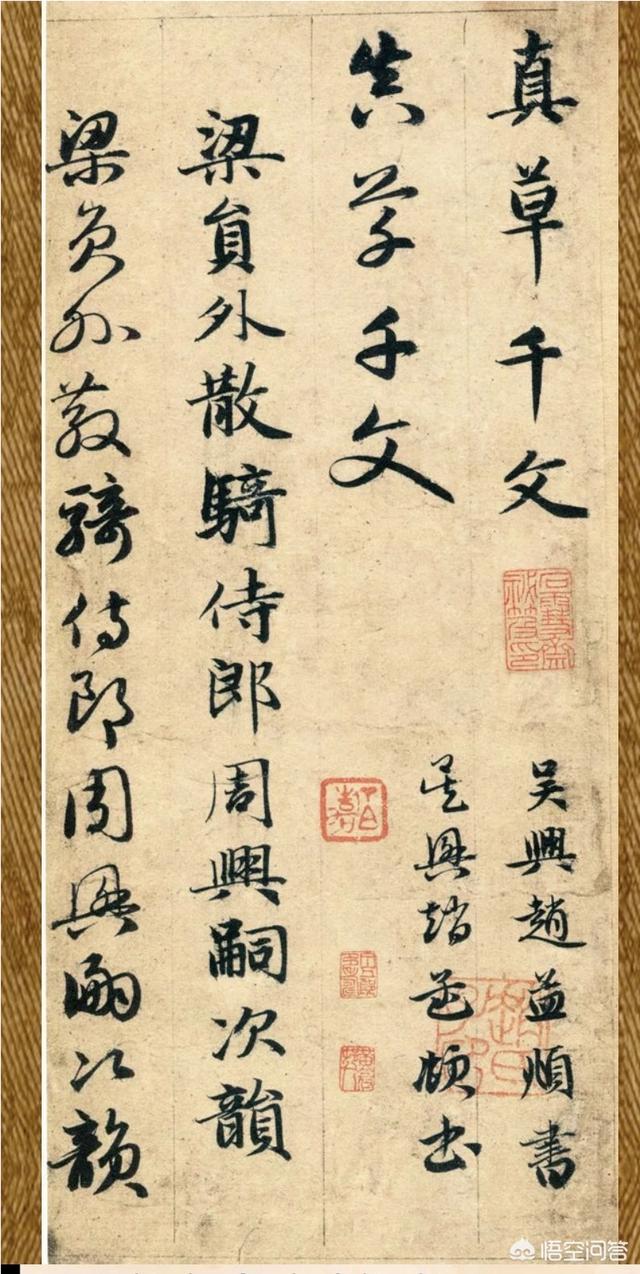 真草千文
吴興趙孟頫書
真草千文
吴興趙孟頫書
梁員外散騎侍郎周興嗣次韻
梁員外散騎侍郎周興嗣次韻
悟空问答